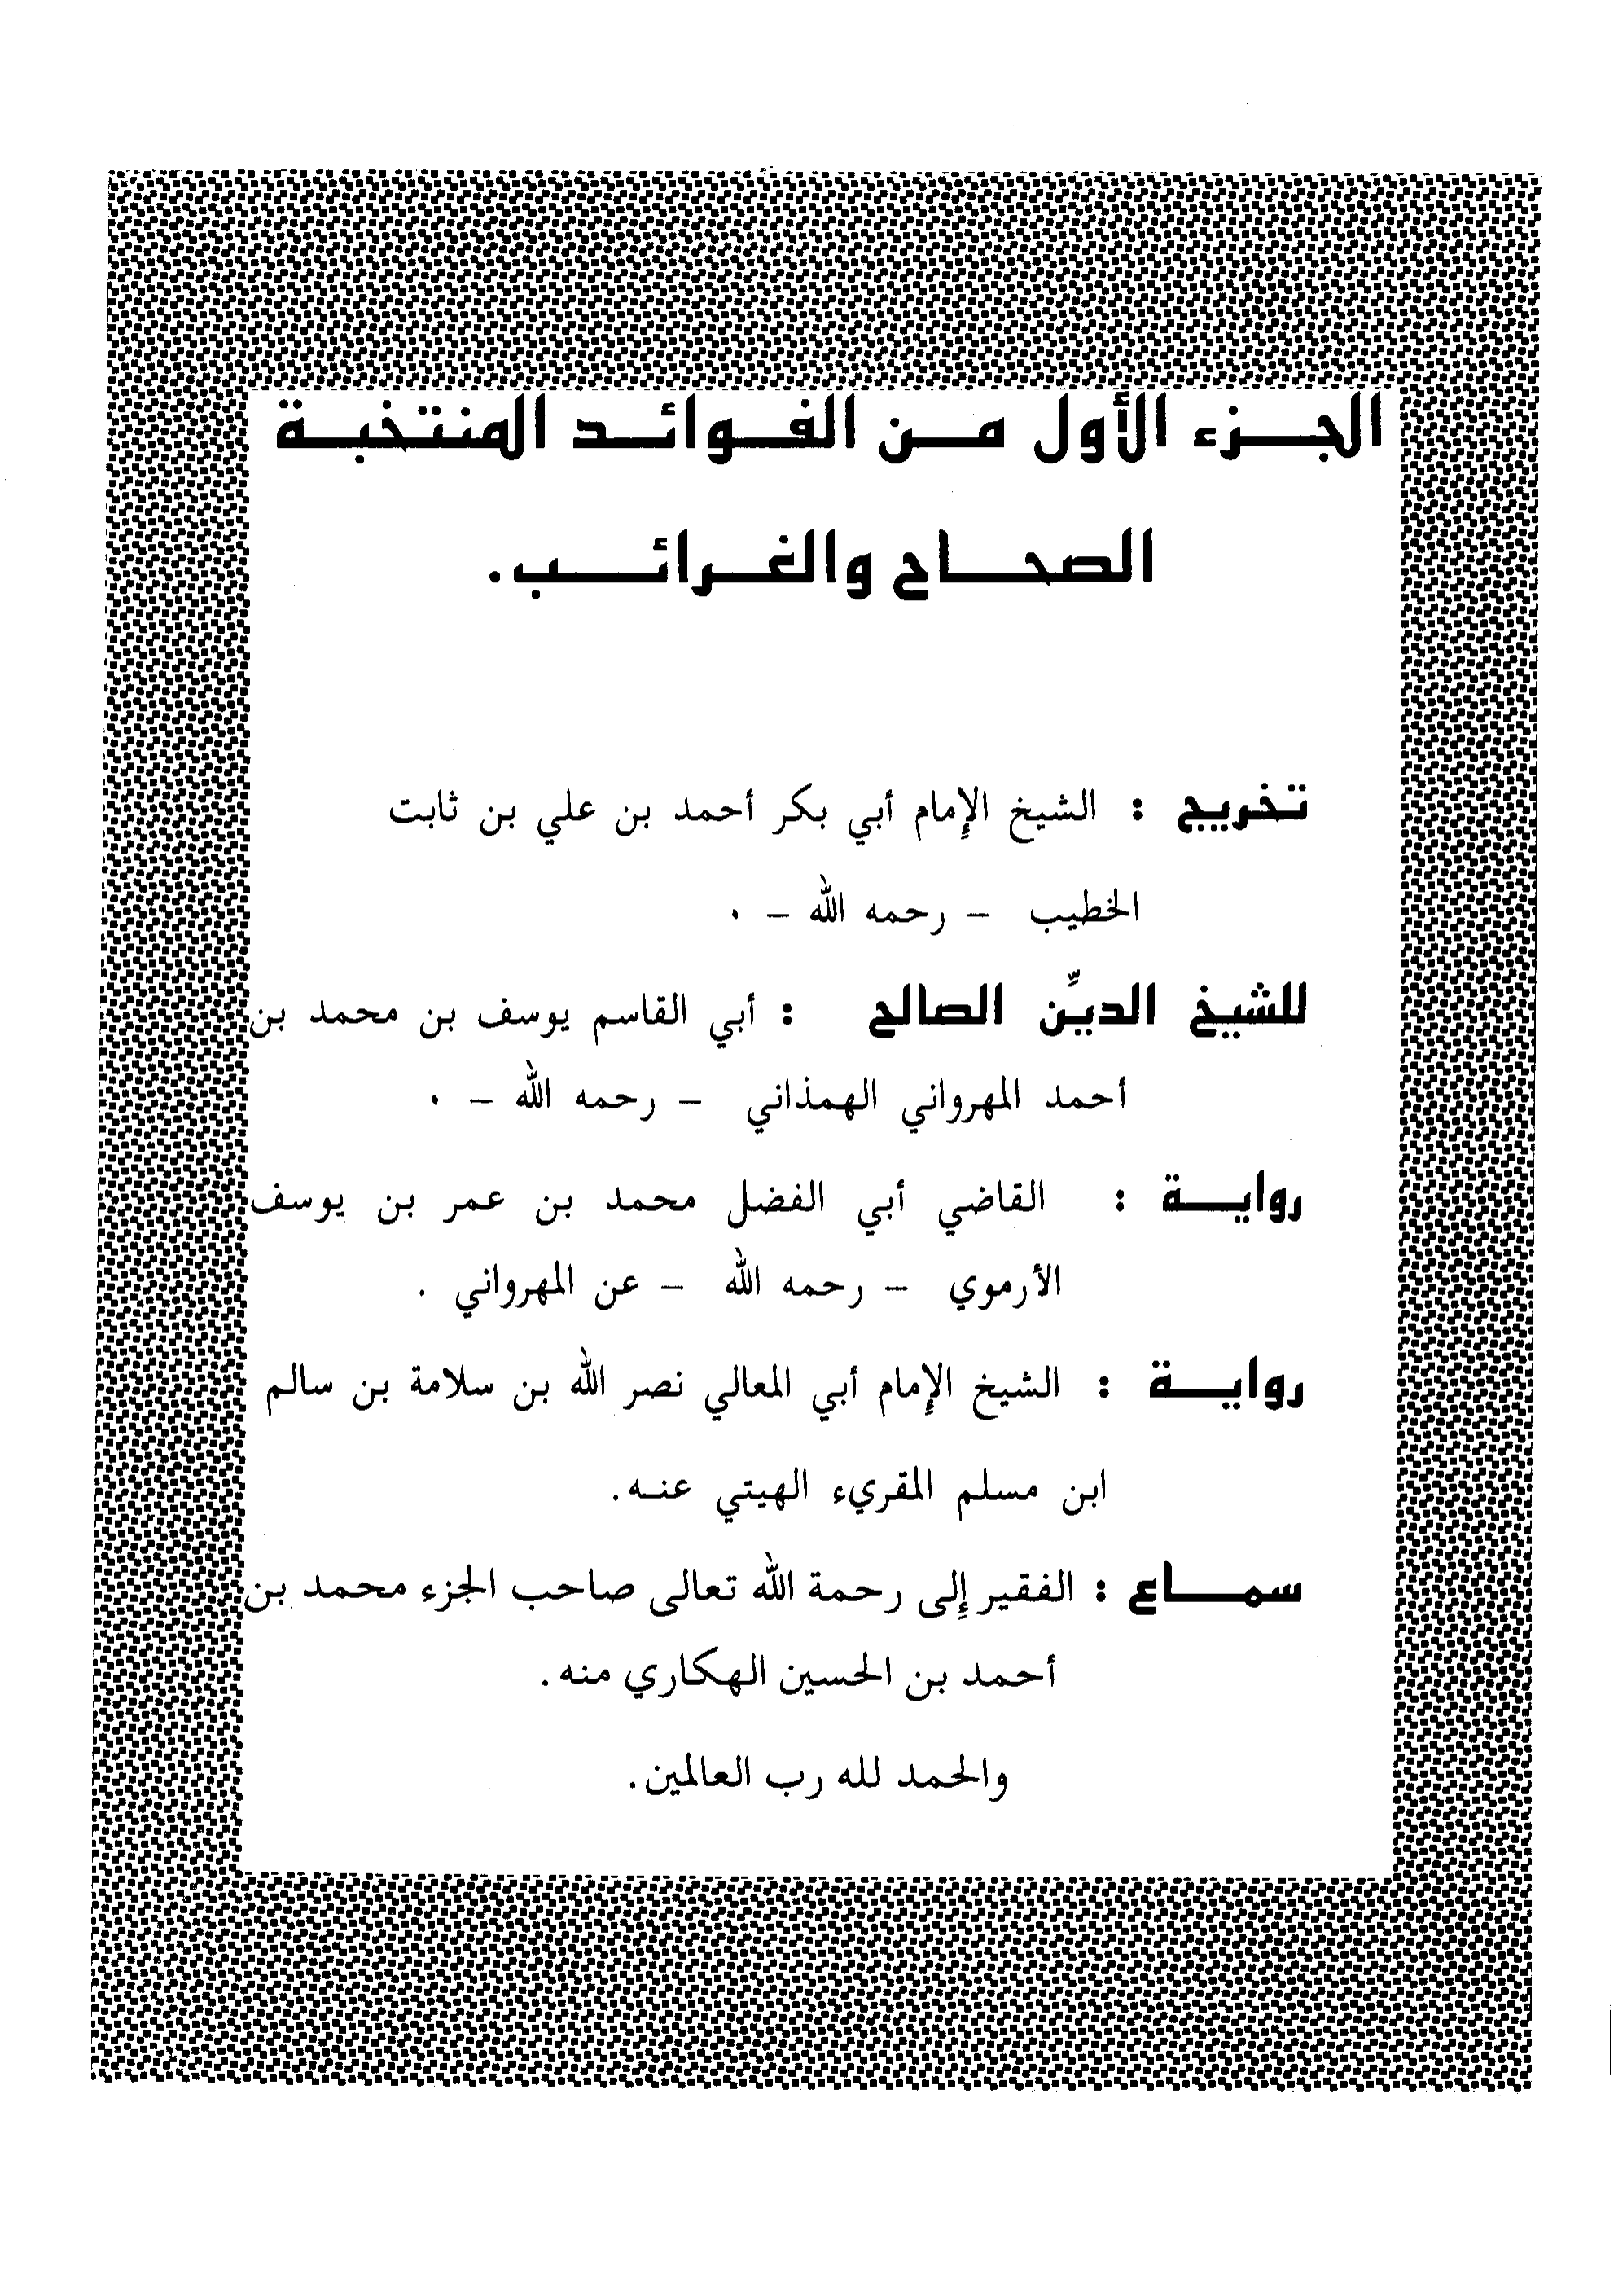 الجزء الأول من الفوائد المنتخبة
الصحاح والغرائب.
تخريج : الشيخ الإمام أبي بكر أحمد بن علي بن ثابت
الخطيب – رحمه الله – .
للشيخ الديِّن الصالح : أبي القاسم يوسف بن محمد بن
أحمد المهرواني الهمذاني – رحمه الله – .
رواية : القاضي أبي الفضل محمد بن عمر بن يوسف
الأرموي – رحمه الله – عن المهرواني .
رواية : الشيخ الإمام أبي المعالي نصر الله بن سلامة بن سالم
ابن مسلم المقريء الهيتي عنه.
سماع : الفقير إلى رحمة الله تعالى صاحب الجزء محمد بن
أحمد بن الحسين الهكاري منه.
والحمد لله رب العالمين.